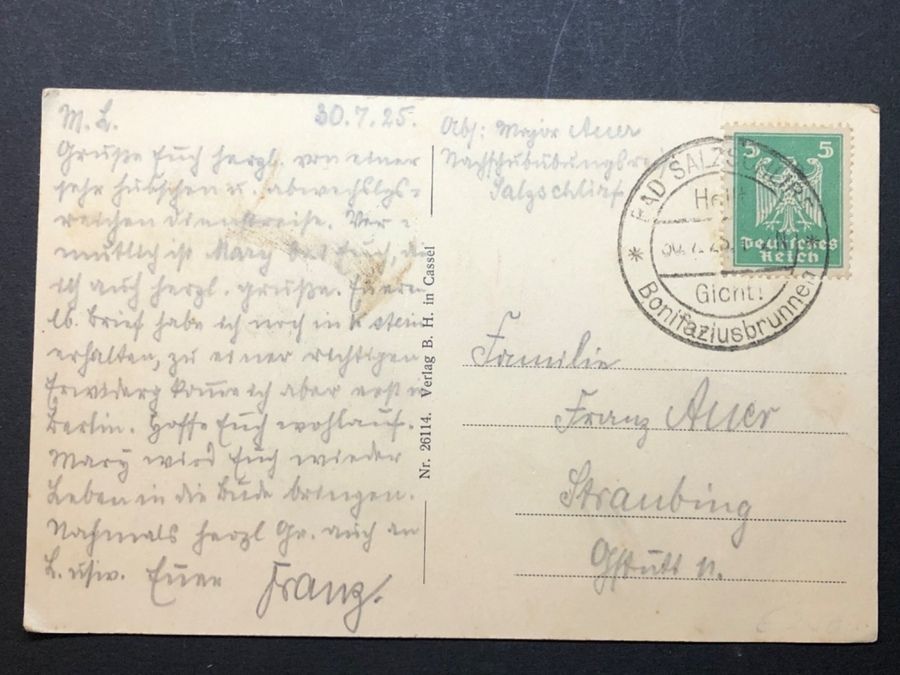 M. L. 30.7.25.
Grüße Euch herzl. von einer
sehr hübschen u. abwechslgs-
reichen Dienstreise. Ver-
mutlich ist Mary bei Euch, die
ich auch herzl. grüße. Eueren
lb. Brief habe ich noch in
erhalten, zu einer richtigen
Erwiderg komme ich aber erst in
Berlin. Hoffe Euch wohlauf.
Mary wird Euch wieder
Leben in die Bude bringen.
Nochmals herzl Gr. auch an
L. usw. Euer Franz.
Nr. 26114. Verlag B. H. in Cassel
Abs: Major Auer
Nachschubübungsrei
Salzschlirf
BAD SALZSCHLIRF
Heilt
30.7.25.
Gicht!
* Bonifaziusbrunnen *
5 5
Deutsches
Reich
Familie
Franz Auer
Straubing
Gstütt